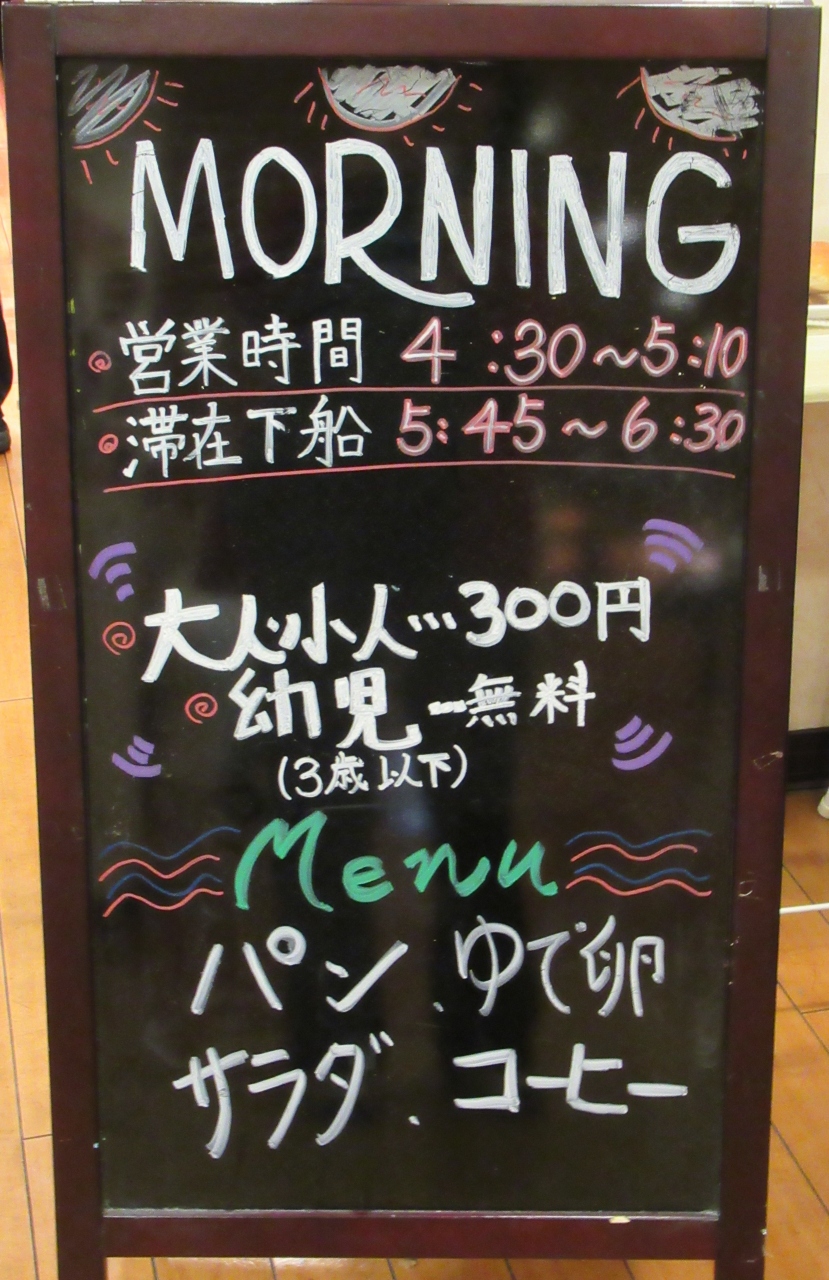 MORNING
営業時間 4:30～5:10
滞在下船 5:45～6:30
大人小人…300円
幼児…無料
(3歳以下)
Menu
パン、ゆで卵
サラダ、コーヒー